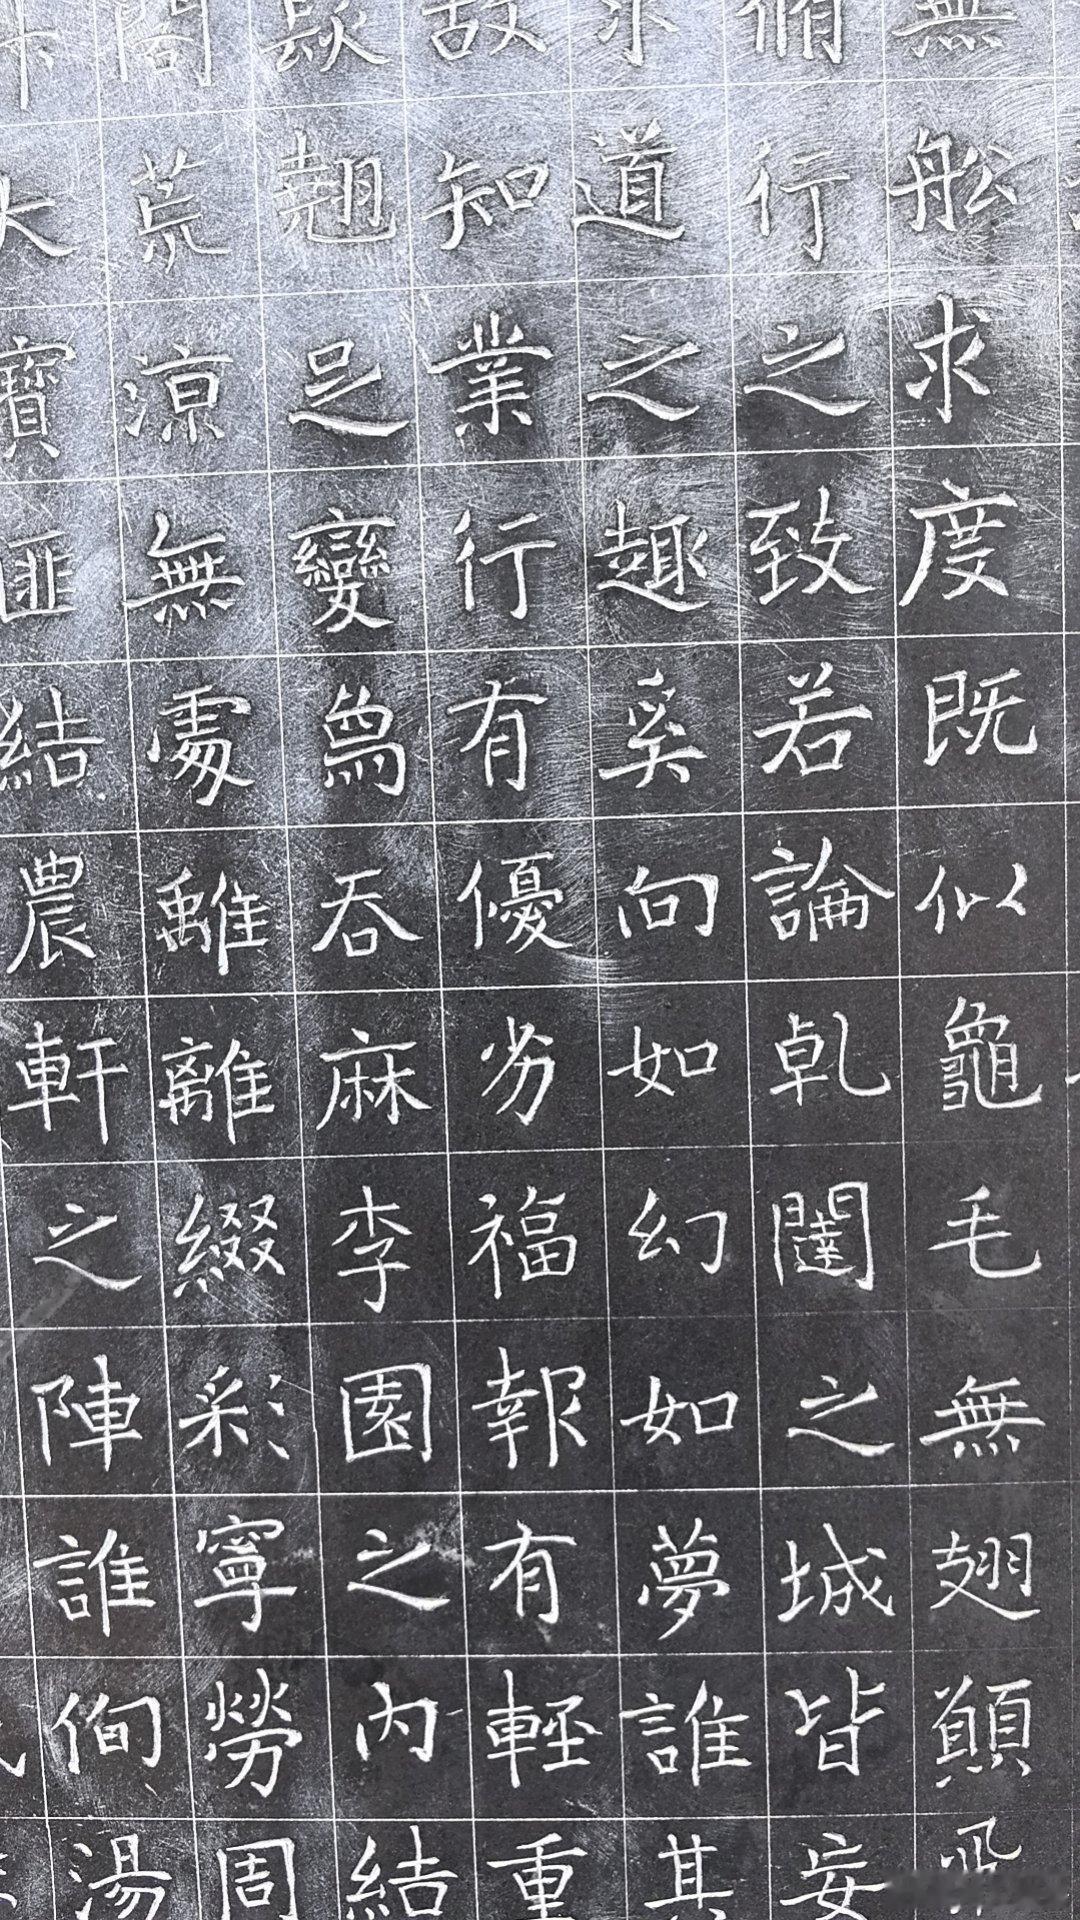 無船求度既似龜毛無翅願飛
脩行之致若論乹闥之城皆妄
道之趣奚向如幻如夢誰其
故知業行有優劣福報有輕重
翹足變為吞麻李園之内結
閣荒涼無處離離綴彩寧勞周
大寶匪結農軒之陣誰侚湯